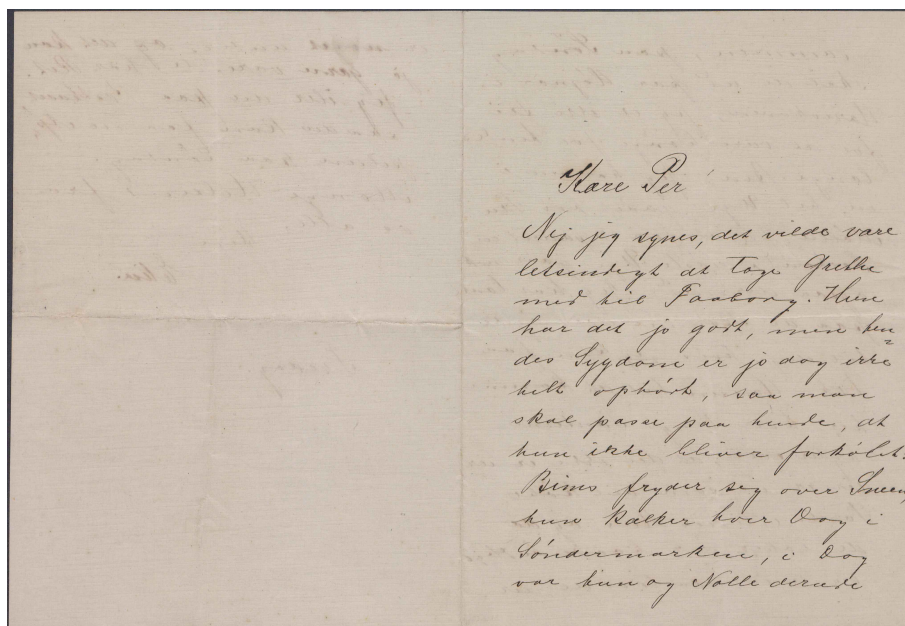 Kære Per
Nej jeg synes, det vilde være
letsindigt at tage Grethe
med til Faaborg. Hun
har det jo godt, men hen=
des Sygdom er jo dog ikke
helt ophørt, saa man
skal passe paa hende, at
hun ikke bliver forkølet.
Bims fryder sig over Sneen,
hun kælker hver Dag i
Søndermarken, i Dag
var hun og Nolle derude